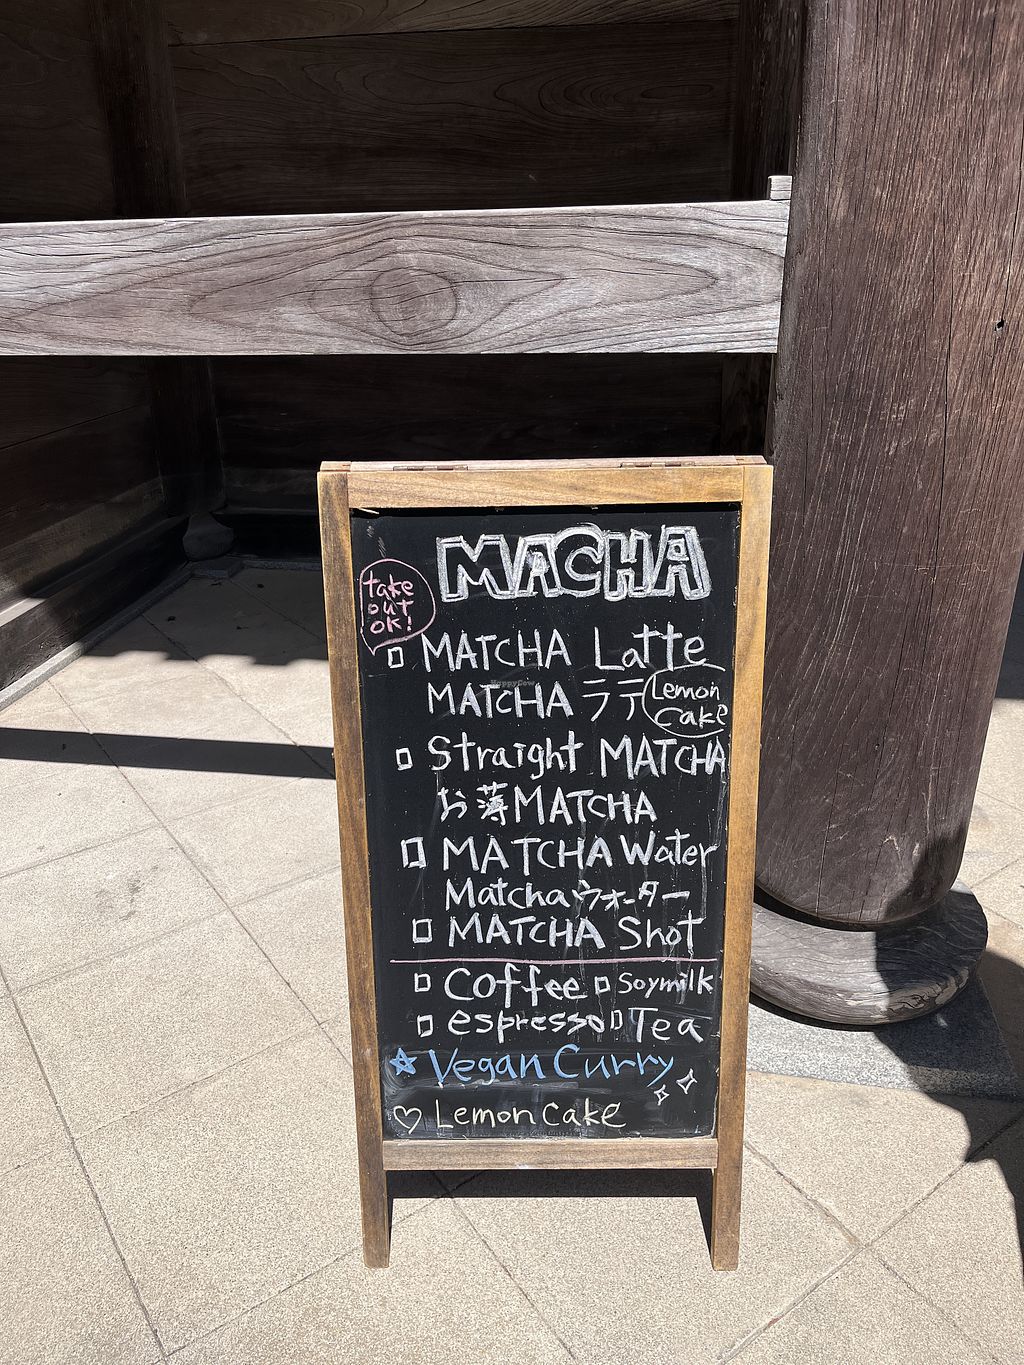 MACHA
take
out
ok!
□ MATCHA Latte
MATCHA ラテ
Lemon
cake
□ Straight MATCHA
お薄MATCHA
□ MATCHA Water
Matchaウォーター
□ MATCHA Shot
□ Coffee □ Soymilk
□ espresso □ Tea
☆ Vegan Curry
♡ Lemon cake
HappyCow